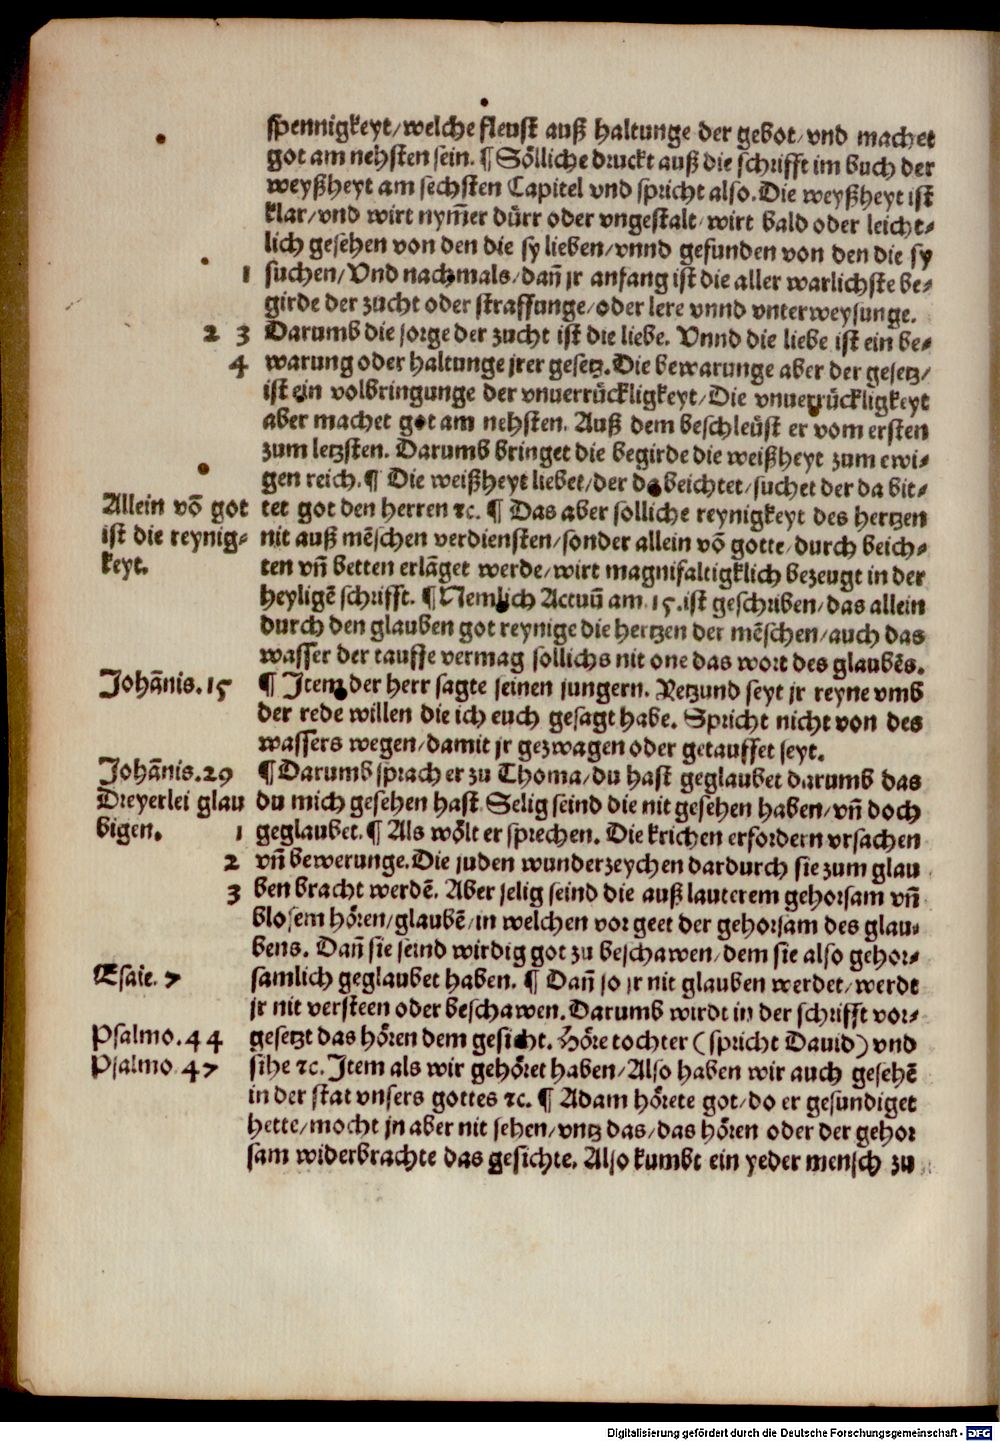 spennigkeyt/welche fleust auß haltunge der gebot/vnd machet
got am nehsten sein. ¶ Sölliche druckt auß die schrifft im buch der
weyßheyt am sechsten Capitel vnd spricht also. Die weyßheyt ist
klar/vnd wirt nym̃er dürr oder vngestalt/wirt bald oder leicht⸗
lich gesehen von den die sy lieben/vnnd gefunden von den die sy
1 suchen/Vnd nachmals/dañ jr anfang ist die aller warlichste be⸗
girde der zucht oder straffunge/oder lere vnnd vnterweysunge.
2 3 Darumb die sorge der zucht ist die liebe. Vnnd die liebe ist ein be⸗
4 warung oder haltunge jrer gesetz. Die bewarunge aber der gesetz/
ist ein volbringunge der vnuerrückligkeyt/Die vnuerrückligkeyt
aber machet got am nehsten. Auß dem beschleüst er vom ersten
zum letzsten. Darumb bringet die begirde die weißheyt zum ewi⸗
gen reich. ¶ Die weißheyt liebet/der da beichtet/suchet der da bit⸗
Allein võ got tet got den herren ⁊c. ¶ Das aber solliche reynigkeyt des hertzen
ist die reynig⸗ nit auß mẽschen verdiensten/sonder allein võ gotte/durch beich⸗
keyt. ten vñ betten erlãget werde/wirt magnifaltigklich bezeugt in der
heyligẽ schrifft. ¶ Nemlich Actuũ am .15. ist geschriben/das allein
durch den glauben got reynige die hertzen der mẽschen/auch das
wasser der tauffe vermag sollichs nit one das wort des glaubẽs.
Johãnis. 15 ¶ Item der herr sagte seinen jungern. Yetzund seyt jr reyne vmb
der rede willen die ich euch gesagt habe. Spricht nicht von des
wassers wegen/damit jr gezwagen oder getauffet seyt.
Johãnis. 29 ¶ Darumb sprach er zu Thoma/du hast geglaubet darumb das
Dreyerlei glau du mich gesehen hast. Selig seind die nit gesehen haben/vñ doch
bigen. 1 geglaubet. ¶ Als wölt er sprechen. Die krichen erfordern vrsachen
2 vñ bewerunge. Die juden wunderzeychen dardurch sie zum glau
3 ben bracht werdẽ. Aber selig seind die auß lauterem gehorsam vñ
blosem hören/glaubẽ/in welchen vor geet der gehorsam des glau⸗
bens. Dañ sie seind wirdig got zu beschawen/dem sie also gehor⸗
Esaie. 7 samlich geglaubet haben. ¶ Dañ so jr nit glauben werdet/werdt
jr nit versteen oder beschawen. Darumb wirdt in der schrifft vor⸗
Psalmo. 44 gesetzt das hören dem gesicht. Höre tochter (spricht Dauid) vnd
Psalmo 47 sihe ⁊c. Item als wir gehöret haben/Also haben wir auch gesehẽ
in der stat vnsers gottes ⁊c. ¶ Adam hörete got/do er gesundiget
hette/mocht jn aber nit sehen/vntz das/das hören oder der gehor
sam widerbrachte das gesichte. Also kumbt ein yeder mensch zu
Digitalisierung gefördert durch die Deutsche Forschungsgemeinschaft - DFG